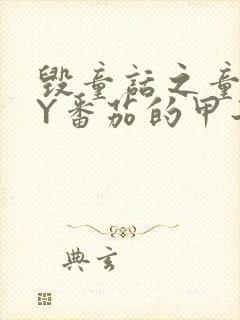 毁童话之童
Y番茄的甲
典玄